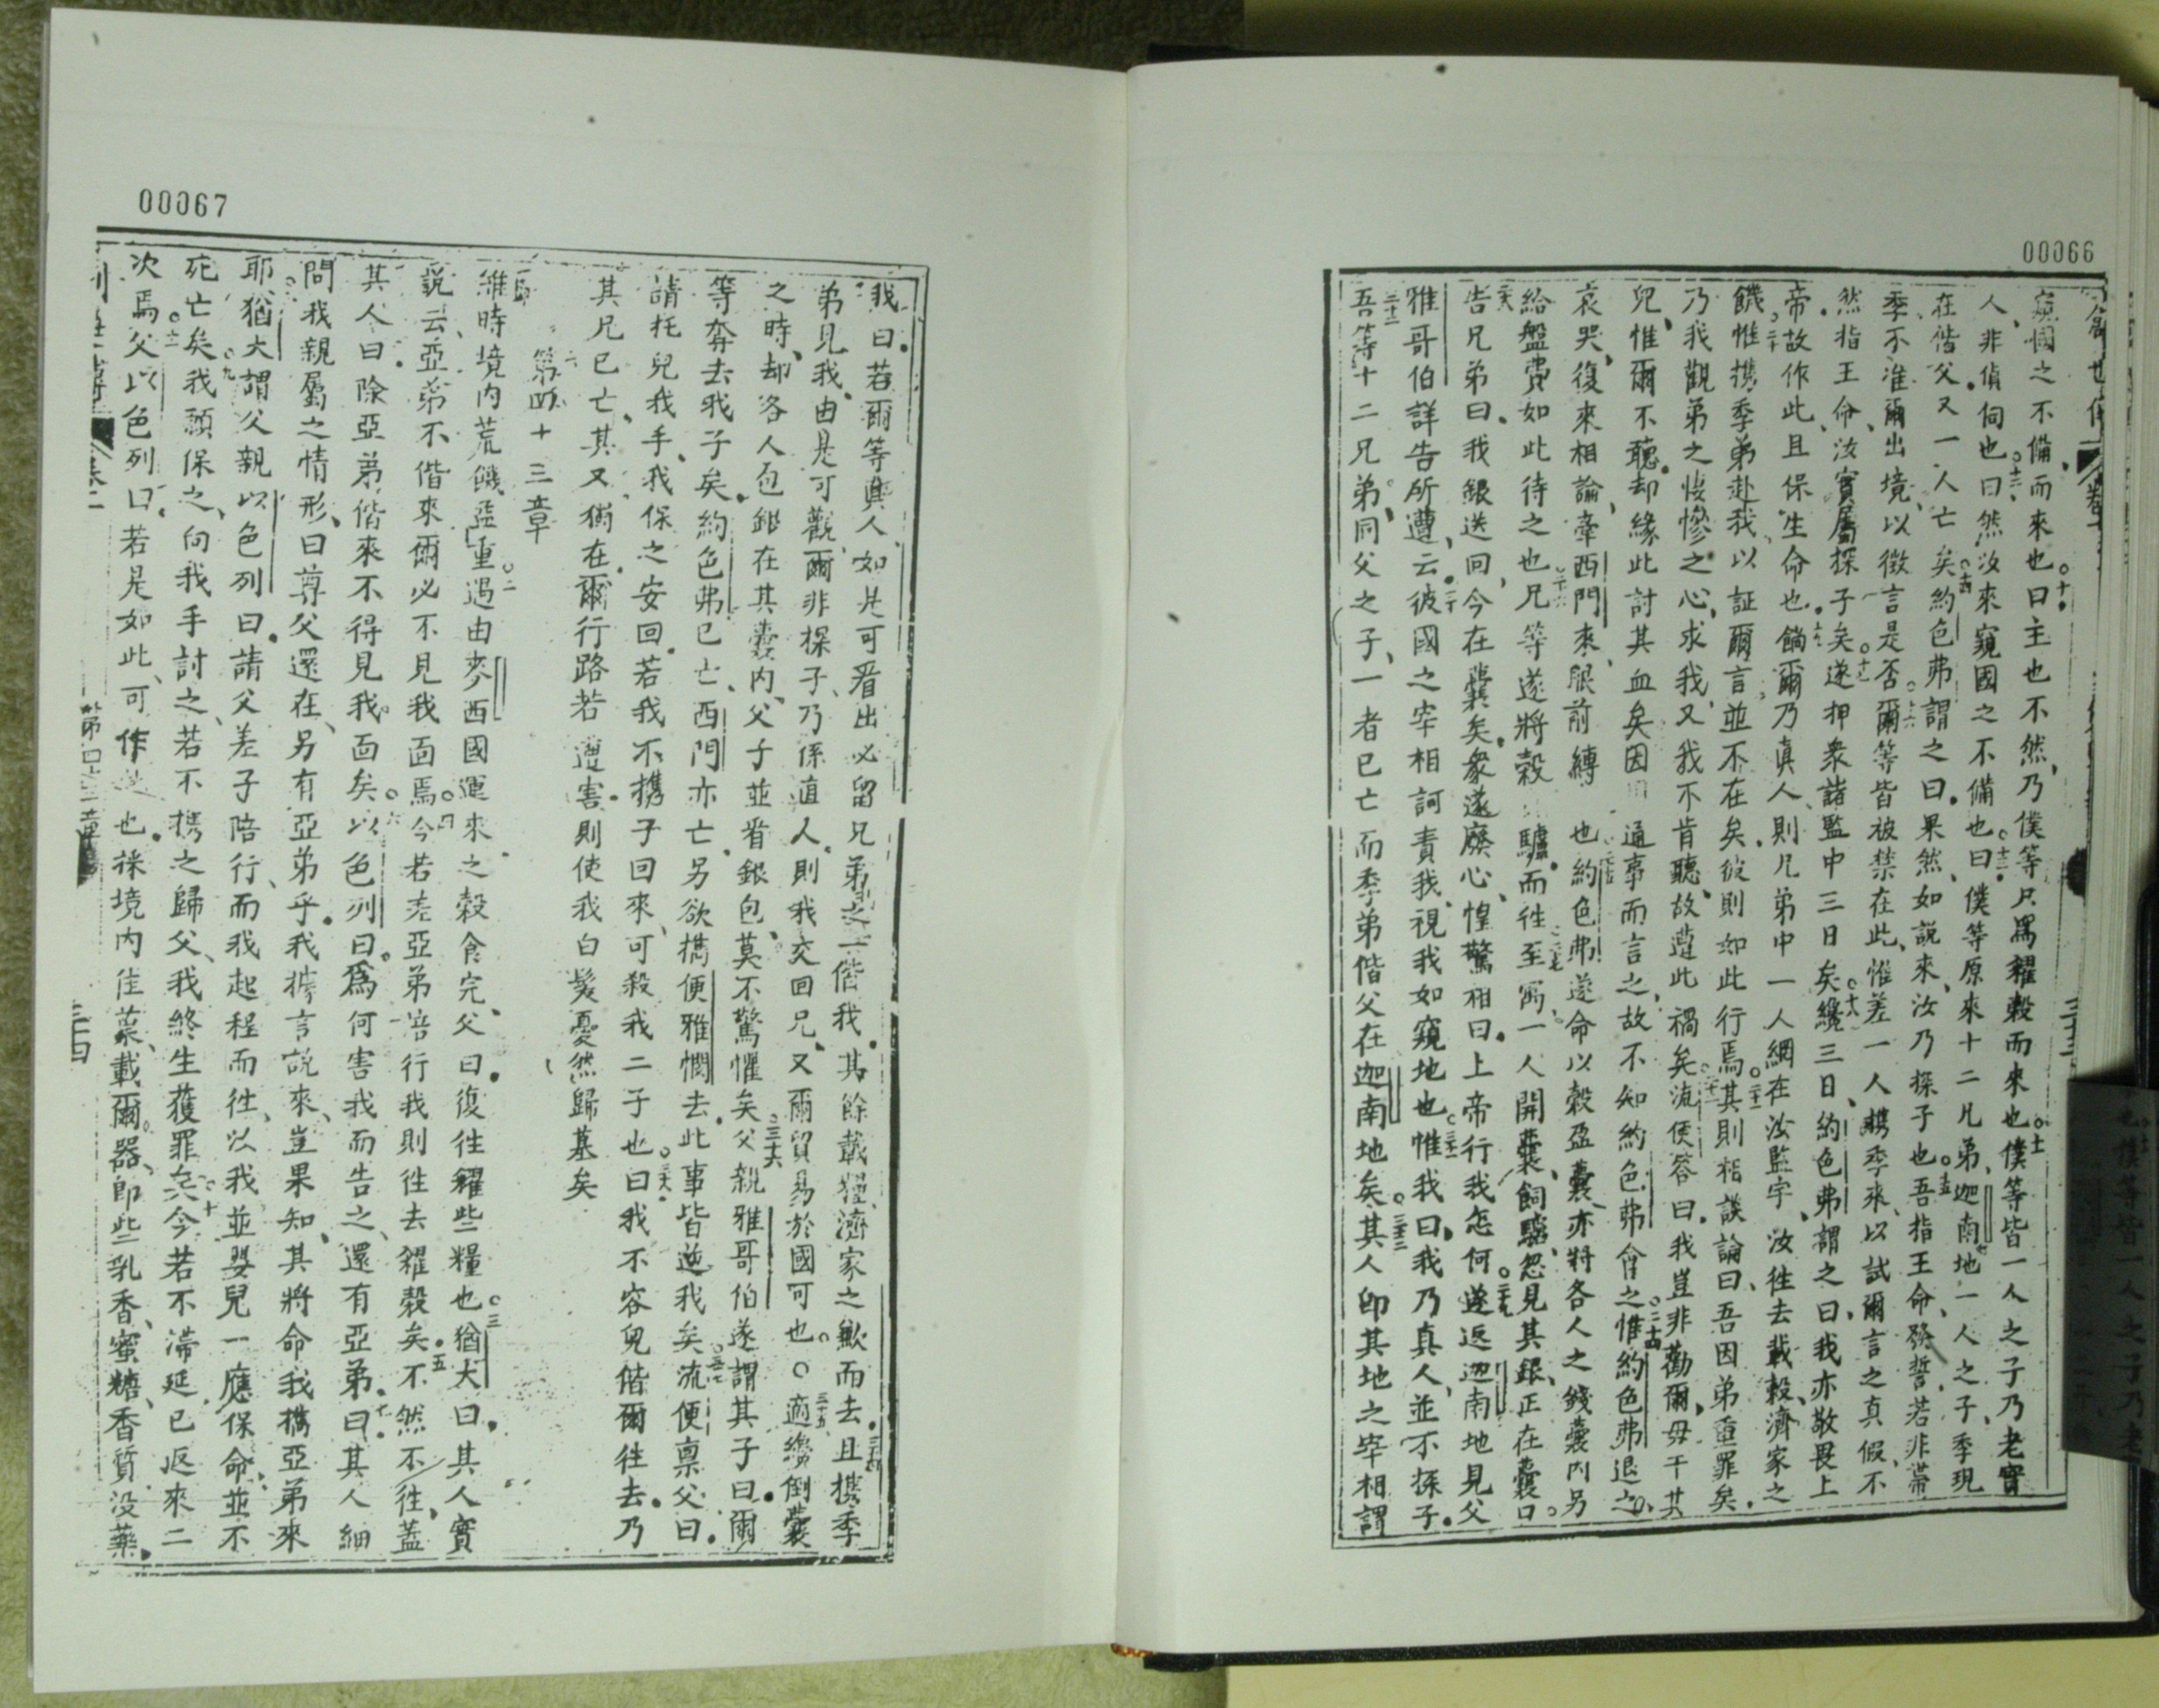 00066
窺國之不備而來也曰主也不然乃僕等只爲糴穀而來也僕等皆一人之子乃老實
人非偵伺也曰然汝來窺國之不備也曰僕等原來十二兄弟迦南地一人之子季現
在偕父又一人亡矣約色弗謂之曰果然如說來汝乃探子也吾指王命發誓若非帶
季不准爾出境以徵言是否爾等皆被禁在此惟差一人攜季來以試爾言之真假不
然指王命汝實屬探子矣遂押衆諸監中三日矣纔三日約色弗謂之曰我亦敬畏上
帝故作此且保生命也倘爾乃真人則兄弟中一人綑在汝監牢汝徃去載穀濟家之
饑惟攜季弟赴我以証爾言並不在矣彼則如此行焉其則相談論曰吾因弟重罪矣
乃我觀弟之悽慘之心求我又我不肯聽故遭此禍矣流便答曰我豈非勸爾毋干其
兒惟爾不聽却緣此討其血矣因 通事而言之故不知約色弗會之惟約色弗退之
哀哭復來相論牽西門來眼前縛 也約色弗遂命以穀盈囊亦將各人之錢囊内另
給盤費如此待之也兄等遂將穀 驢而徃至寓一人開囊飼驢忽見其銀正在囊口
告兄弟曰我銀送回今在囊矣衆遂廢心惶驚相曰上帝行我怎何遂返迦南地見父
雅哥伯詳告所遭云彼國之宰相訶責我視我如窺地也惟我曰我乃真人並不探子
吾等十二兄弟同父之子一者已亡而季弟偕父在迦南地矣其人即其地之宰相謂
三十三
00067
我曰若爾等真人如是可看出必留兄弟之一偕我其餘載糧濟家之歉而去且攜季
弟見我由是可觀爾非探子乃係直人則我交回兄又爾貿易於國可也○適纔倒囊
之時却各人包銀在其囊内父子並看銀包莫不驚懼矣父親雅哥伯遂謂其子曰爾
等奪去我子矣約色弗已亡西門亦亡另欲攜便雅憫去此事皆逆我矣流便禀父曰
請托兒我手我保之安回若我不攜子回來可殺我二子也曰我不容兒偕爾徃去乃
其兄已亡其又獨在爾行路若遭害則使我白髮憂然歸墓矣
第四十三章
維時境内荒饑孟重遇由麥西國運來之穀食完父曰復徃糴些糧也猶大曰其人實
說云亞弟不偕來爾必不見我面焉今若差亞弟陪行我則徃去糴穀矣不然不徃蓋
其人曰除亞弟偕來不得見我面矣以色列曰爲何害我而告之還有亞弟曰其人細
問我親屬之情形曰尊父還在另有亞弟乎我據言說來豈果知其將命我攜亞弟來
耶猶大謂父親以色列曰請父差子陪行而我起程而徃以我並嬰兒一應保命並不
死亡矣我願保之向我手討之若不攜之歸父我終生獲罪矣今若不滯延已返來二
次焉父以色列曰若是如此可作 也採境内佳菓載爾器即些乳香蜜糖香質没藥
三十四